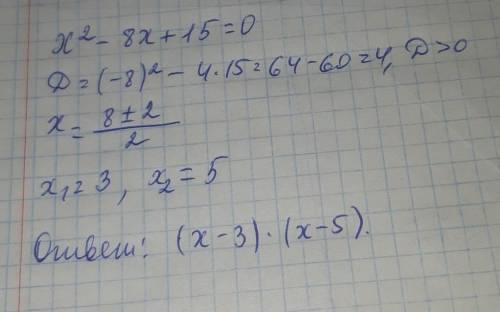 x² - 8x + 15 = 0
D = (-8)² - 4·15 = 64 - 60 = 4, D > 0
x = (8 ± 2)/2
x₁ = 3, x₂ = 5
Ответ: (x - 3)·(x - 5).